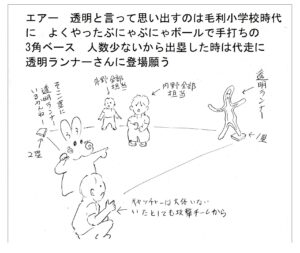 エアー　透明と言って思い出すのは毛利小学校時代
に　よくやったぷにゃぷにゃボールで手打ちの
3角ベース　人数少ないから出塁した時は代走に
透明ランナーさんに登場願う
透明ランナー
1塁
内野全部
担当
外野全部
担当
そこ2塁に
透明ランナー
いるからねー
2塁
キャッチャーは大体いない
いたとしても攻撃チームから